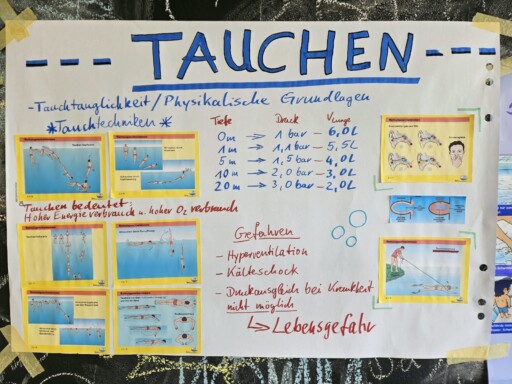 TAUCHEN
- Tauchtauglichkeit / Physikalische Grundlagen
* Tauchtechniken *
Tiefe Druck VLunge
0m → 1 bar - 6,0L
1m → 1,1 bar - 5,5L
5m → 1,5 bar - 4,0L
10m → 2,0 bar - 3,0L
20m → 3,0 bar - 2,0L
Tauchen bedeutet:
Hoher Energieverbrauch u. hoher O₂ verbrauch
Gefahren
- Hyperventilation
- Kälteschock
- Druckausgleich bei Krankheit
nicht möglich
↳ Lebensgefahr